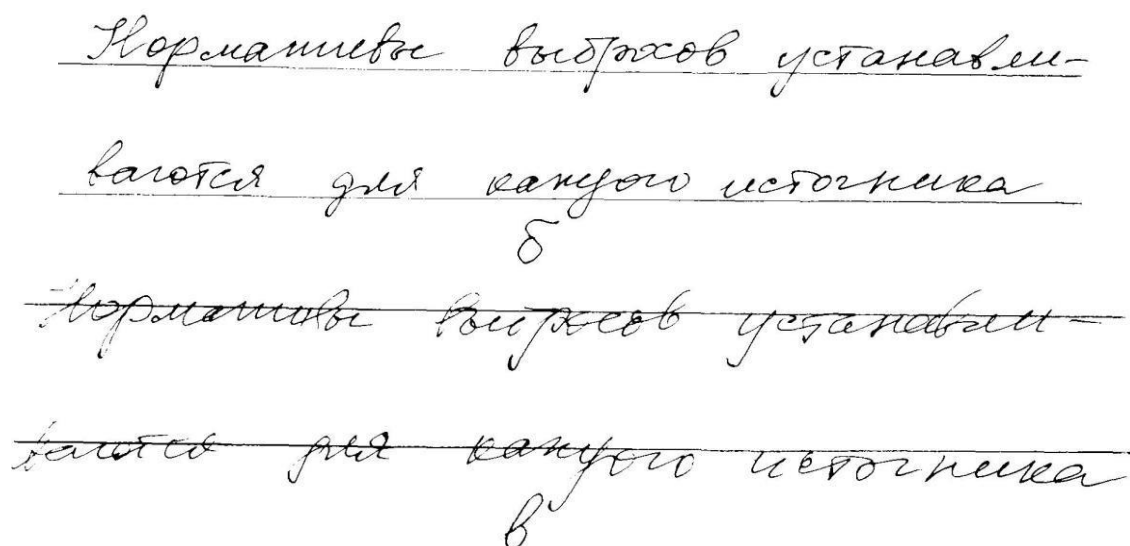 Нормативы выбросов устанавли-
ваются для каждого источника
б
Нормативы выбросов устанавли-
ваются для каждого источника
в